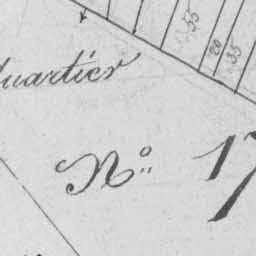 55
20
35
uartier
N.o 17